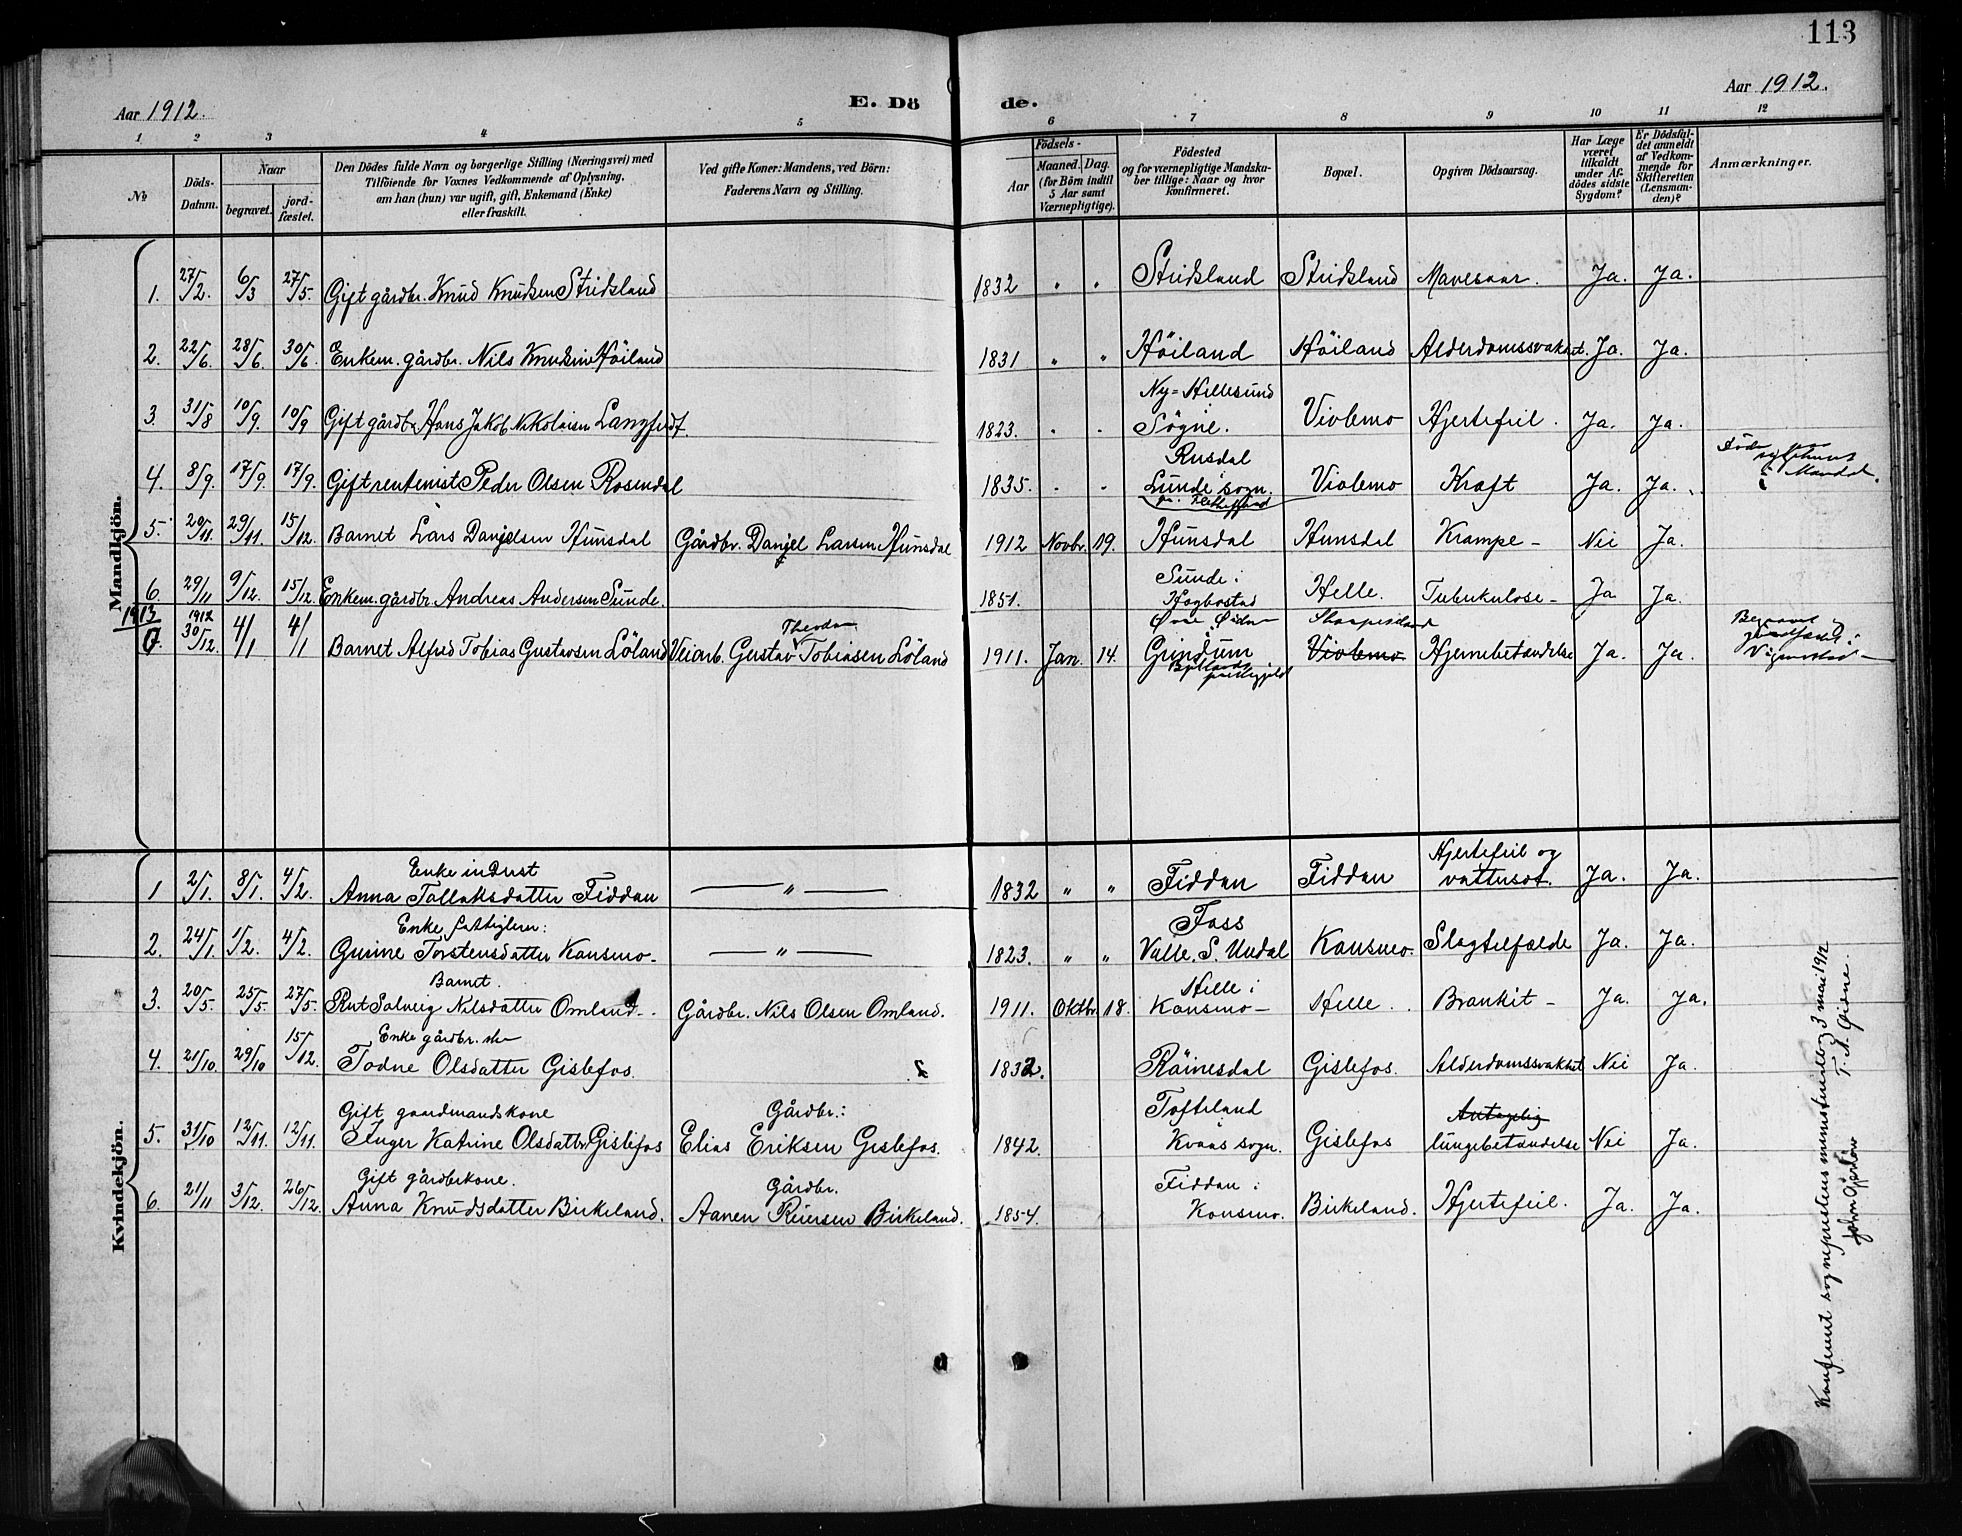 113
Aar 1912.
E. Dö de.
Aar 1912.
1 2 3 4 5 6 7 8 9 10 11 12
No
Döds-Datum.
Naar
begravet.
jord-fæstet.
Den Dödes fulde Navn og borgerlige Stilling (Næringsvei) med
Tilföiende for Voxnes Vedkommende af Oplysning,
om han (hun) var ugift, gift, Enkemand (Enke)
eller fraskilt.
Ved gifte Koner: Mandens, ved Börn:
Faderens Navn og Stilling.
Aar
Födsels-
Maaned. Dag.
(for Börn indtil
5 Aar samt
Værnepligtige).
Födested
og for værnepligtige Mandska-
ber tillige: Naar og hvor
konfirmeret.
Bopæl.
Opgiven Dödsaarsag.
Har Læge
været
tilkaldt
under Af-
dödes sidste
Sygdom?
Er Dödsfal-
det anmeldt
af Vedkom-
mende for
Skifteretten
(Lensman-
den)?
Anmærkninger.
Mandkjön.
1. 27/2. 6/3 27/5. Gift gårdbr. Knud Knudsen Stridsland 1832 " " Stridsland Stridsland Mavesaar. Ja. Ja.
2. 22/6. 28/6. 30/6. Enkem. gårdbr. Nils Knudsen Höiland 1831 " " Höiland Höiland Alderdomssvakhet. Ja. Ja.
Ny=Hellesund
3. 31/8 10/9. 10/9 Gift gårdbr. Hans Jakob Nikolaisen Langfeldt. 1823. " " Sögne. Viblemo Hjertefeil. Ja. Ja.
Rusdal
4. 8/9. 17/9. 17/9. Gift rentenist Peder Olsen Rosendal 1835. " " Lunde sogn. Viblemo Kræft Ja. Ja. i Mandal.
5. 20/11. 29/11. 15/12. Barnet Lars Danjelsen Hunsdal Gårdbr. Danjel Larsen Hunsdal 1912 Novbr. 19. Hunsdal Hunsdal Krampe – Nei Ja.
Sunde i
6. 29/11 9/12. 15/12. Enkem. gårdbr. Andreas Andersen Sunde. 1851. Hægbostad Helle. Tuberkulose – Ja Ja.
1913
1912
Theodor
Øvre Øidne
7. 30/12. 4/1 4/1 Barnet Alfred Tobias Gustavsen Löland Veiarb. Gustav Tobiasen Löland 1911. Jan. 14. Grindum Viblemo Hjernebetændelse Ja. Ja.
Bjelland
præstegjeld
Kvindekjön.
Enke indrest
Hjertefeil og
1 2/1. 8/1. 4/2. Anna Tollaksdatter Fiddan " 1832 " " Fiddan Fiddan vattersot. Ja. Ja.
Enke fattiglem:
Foss
2. 24/1. 1/2. 4/2. Gurine Torstensdatter Konsmo – " 1823. " " Valle. S. Undal Konsmo. Slagtilfælde Ja. Ja.
Barnet.
Helle i
3. 20/5 25/5 27/5. Rut Solveig Nilsdatter Omland – Gårdbr. Nils Olsen Omland. 1911. Oktbr. 18. Konsmo – Helle. Bronkit – Ja. Ja.
Enke gårdbr.ske
4. 21/10 29/10 15/12. Todne Olsdatter Gislefos. 1832. Röinesdal Gislefos. Alderdomssvakhet Nei Ja.
Gift gaardmandskone
Gårdbr.:
Tofteland
Antagelig
5. 31/10 12/11. 12/11. Inger Katrine Olsdatter Gislefos Elias Eriksen Gislefos. 1842. Kvaas sogn. Gislefos lungebetændelse Nei Ja.
Gift gårdbrkone.
Gårdbr.
Fiddan i
6. 21/11 3/12. 26/12. Anna Knudsdatter Birkeland. Aanen Reiersen Birkeland. 1854. Konsmo. Birkeland. Hjertefeil. Ja. Ja.
Konferert sogneprestens ministerialbog 3 mai 1912
T. A. Øidne.